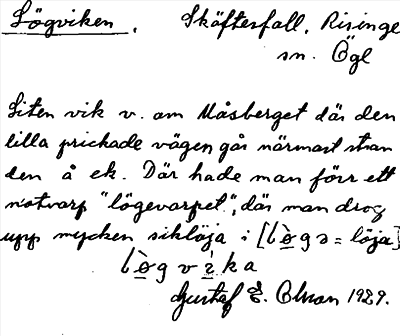 Lögviken. Skäftesfall, Risinge
sn. Ögl
Liten vik v. om Måsberget där den
lilla prickade vägen går närmast stran
den å ek. Där hade man förr ett
notvarp "lögevarpet", där man drog
upp mycken siklöja i [lògə = löja]
lògvìka
Gustaf E. Olsson 1929.